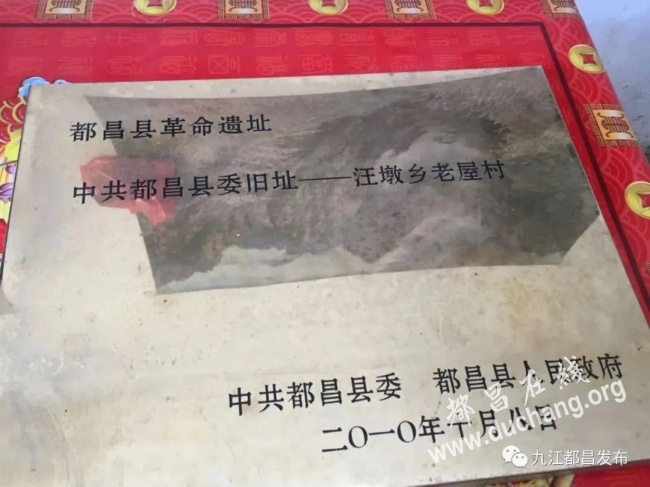 都昌县革命遗址
中共都昌县委旧址——汪墩乡老屋村
中共都昌县委 都昌县人民政府
二〇一〇年十月八日
都昌在线
www.duchang.org
九江都昌发布